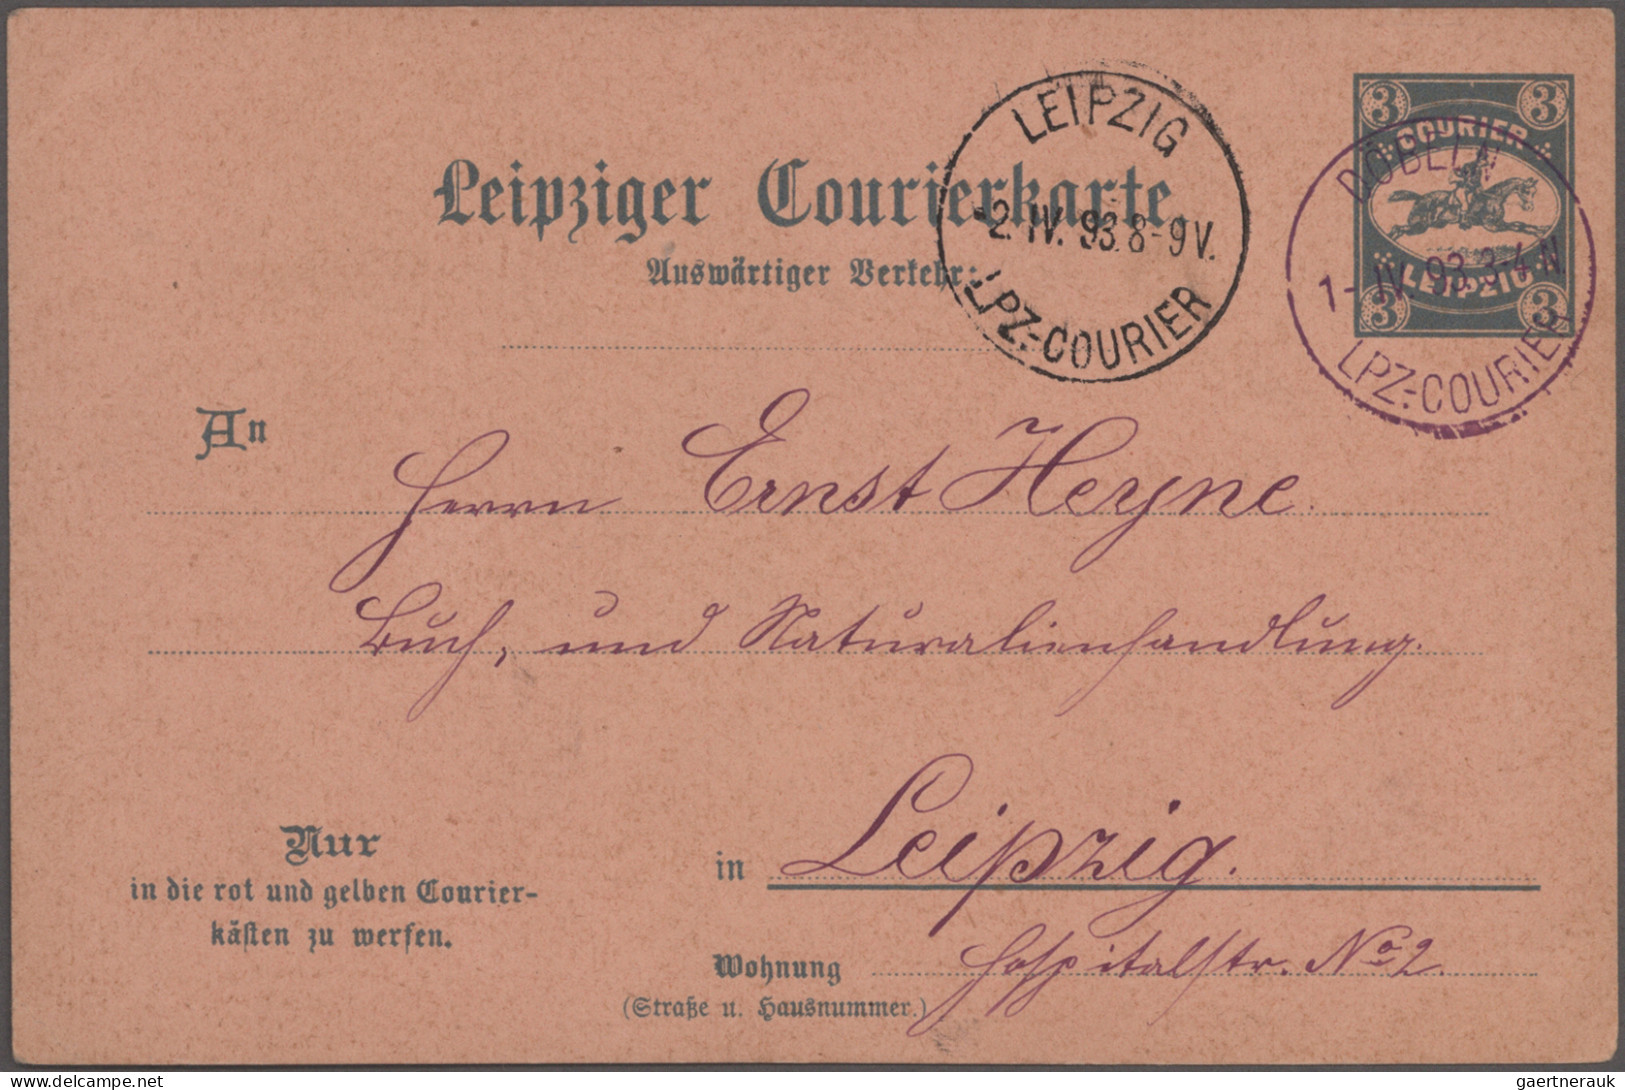 3 3
COURIER
LEIPZIG
3 3
DÖBELN
1-IV 93.3-4 N.
LPZ.-COURIER
LEIPZIG
-2. IV. 93. 8-9 V.
LPZ.-COURIER
Leipziger Courierkarte
Auswärtiger Verkehr:
An
Herrn Ernst Heyne.
Buch- und Naturalienhandlung.
Nur
in die rot und gelben Courier-
kästen zu werfen.
in Leipzig.
Wohnung Hospitalstr. No 2.
(Straße u. Hausnummer.)
www.delcampe.net
gaertnerauk